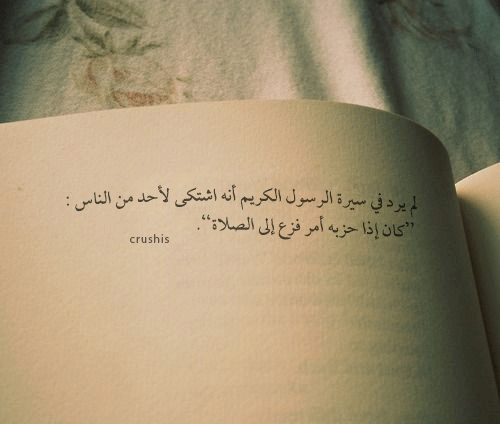 لم يرد في سيرة الرسول الكريم أنه اشتكى لأحد من الناس :
”كان إذا حزبه أمر فزع إلى الصلاة“.
crushis